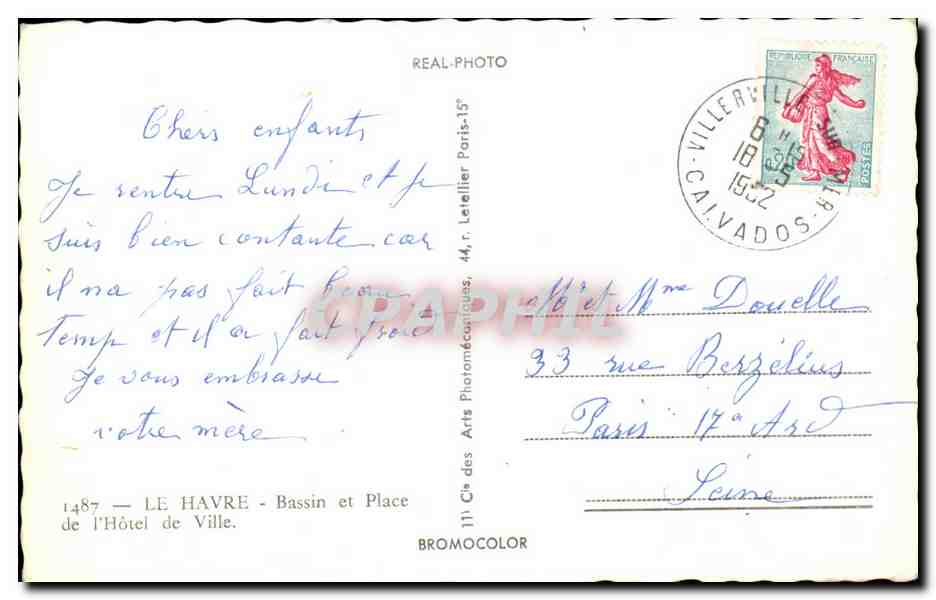 REAL-PHOTO
Chers enfants
Je rentre Lundi et je
suis bien contante car
il na pas fait beau
Temp et il a fait froid
Je vous embrasse
votre mère
1487 — LE HAVRE - Bassin et Place
de l'Hôtel de Ville.
Cie des Arts Photomécaniques, 44, r. Letellier Paris-15e
BROMOCOLOR
REPUBLIQUE FRANÇAISE
POSTES
VILLERVILLE-SUR-MER
18 - 5
CALVADOS
Mr et Mme Douelle
33 rue Berzélius
Paris 17e Ard
Seine
CPAPHIL